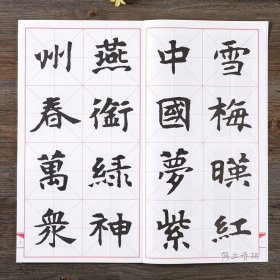 雪梅暎紅
中國夢紫
燕銜緑神
州春萬衆